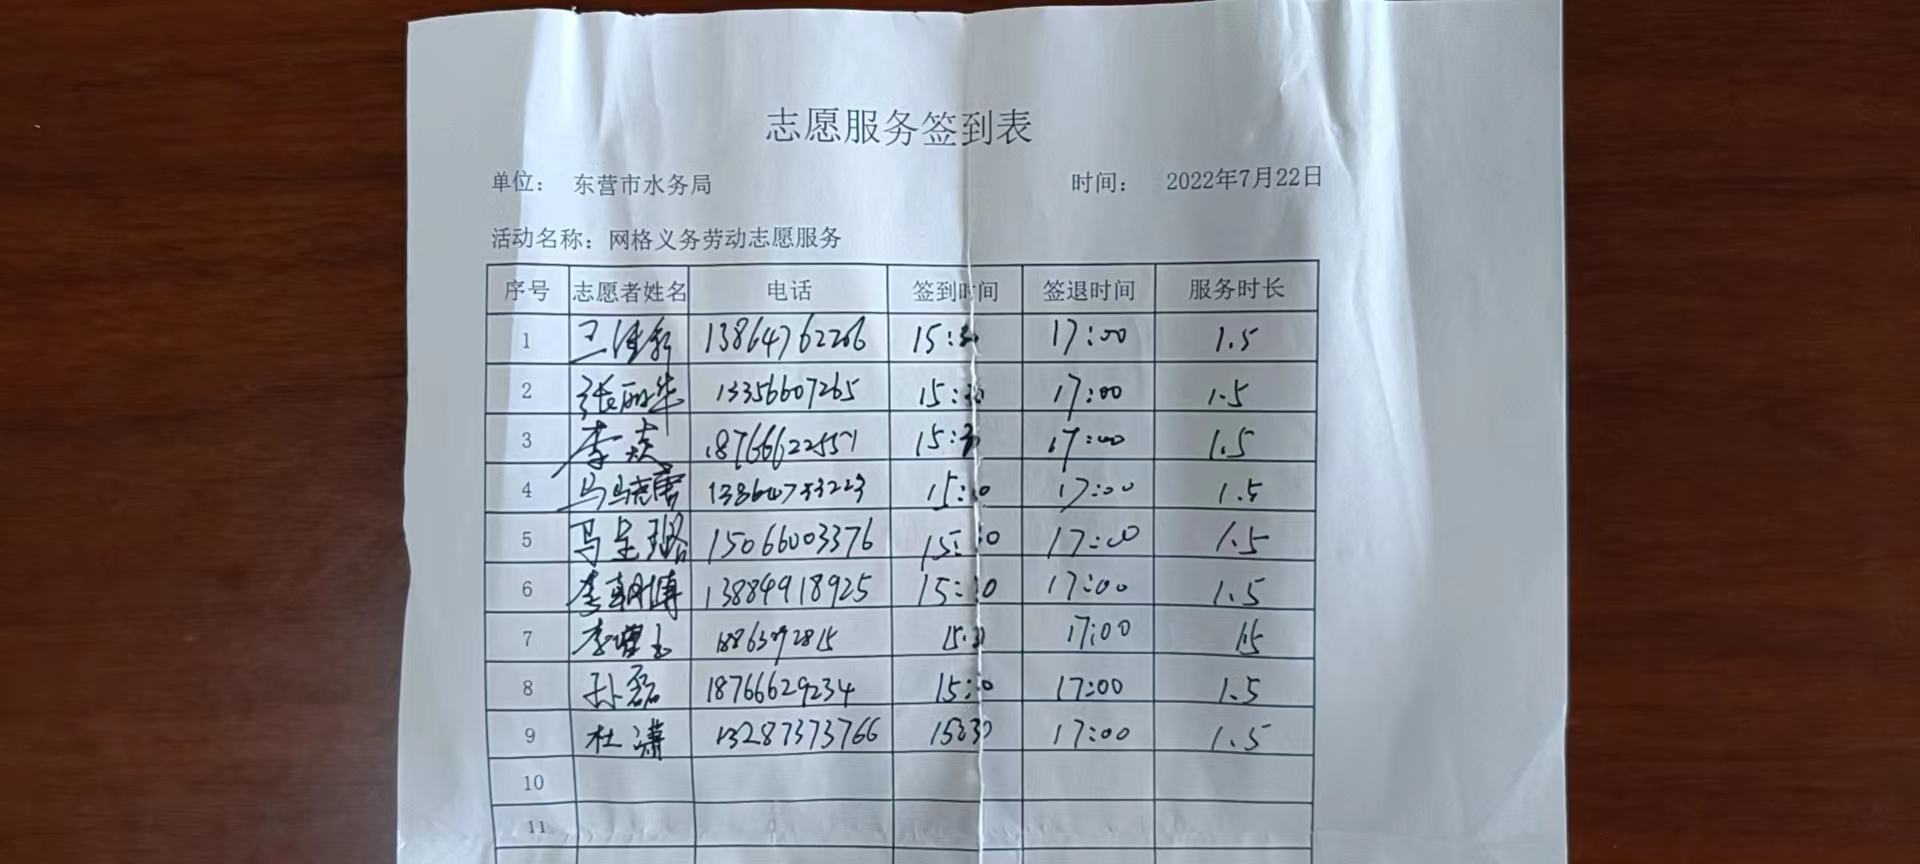 志愿服务签到表
单位： 东营市水务局 时间： 2022年7月22日
活动名称：网格义务劳动志愿服务
序号 志愿者姓名 电话 签到时间 签退时间 服务时长
1 13864762266 15:30 17:00 1.5
2 张丽华 13356607265 15:30 17:00 1.5
3 李炎 18766622557 15:30 17:00 1.5
4 15:30 17:00 1.5
5 马呈璐 15066003376 15:30 17:00 1.5
6 李朝博 13884918925 15:30 17:00 1.5
7 15:30 17:00 1.5
8 孙磊 18766629234 15:30 17:00 1.5
9 杜潇 13287373766 15:30 17:00 1.5
10
11